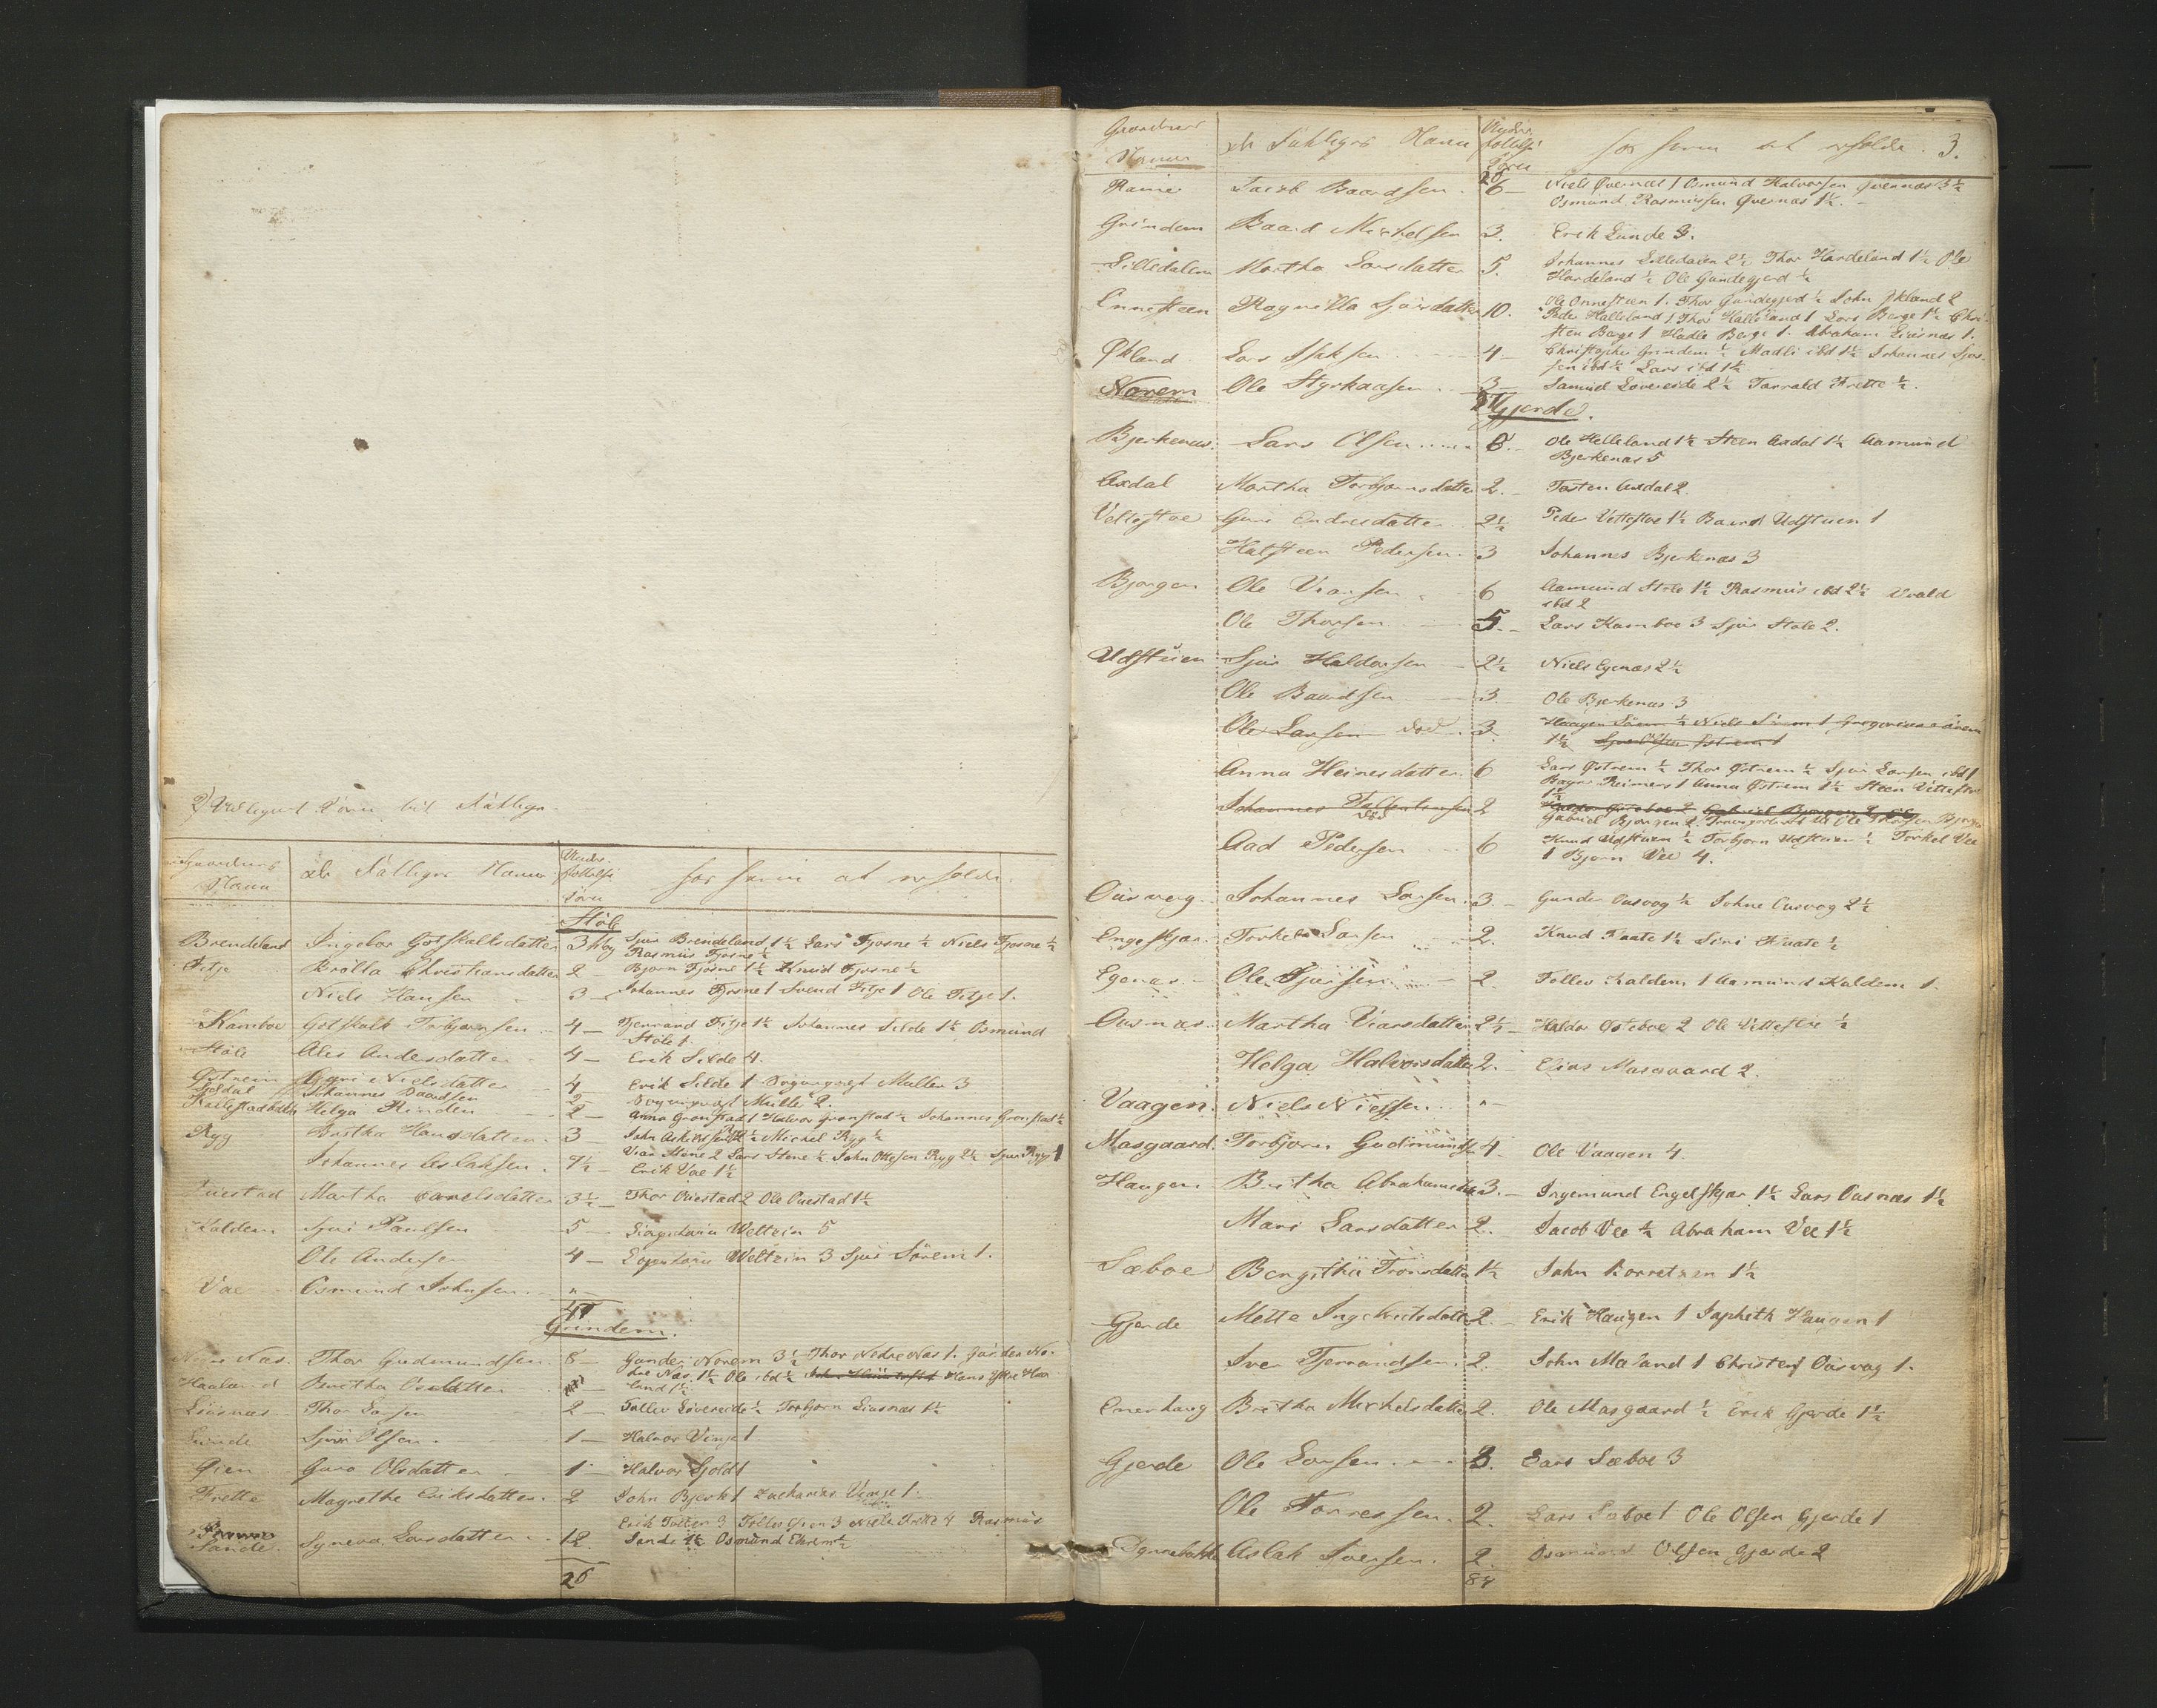 Gaardenes
Navn
de Fattiges Navn
Under-
stöttelse
Törn
for hvem at erholde
Stöle
Brendeland Ingebor Gotskalksdatter 3 Sjur Brendeland 1½ Lars Fjosne ½ Niels Fjosne ½
Rasmus Fjosne ½
Fitje Brölla Christiansdatter 2 – Bjorn Fjosne 1½ Knud Fjosne ½
Niels Hansen 3 – Johannes Fjosne 1 Svend Fitje 1 Ole Fitje 1.
Kamboe Gotskalk Torbjornsen 4 – Tjerrand Fitje 1½ Johannes Silde 1½ Osmund
Stole 1
Stöle Alis Andersdatter 4 – Erik Silde 4.
Östrem Guri Nielsdatter 4 Erik Silde 1 Sogneprest Muller 3
Johannes Baardsen 2 – Sogneprest Muller 2.
Helga Rinden 2 – Anna Gronstad 1 Halvor Gronstad ½ Johannes Gronstad ½
Ryg Britha Hansdatter 3 – John Michel Ryg ½
Johannes Aslaksen 7½ – Viar Stöne 2 Lars Stöne ½ John Ottesen Ryg 2½ Sjur Ryg 1
Erik Vae 1½
Martha 3½ – Thor Ouestad 2 Ole Ouestad 1½
Kaldem Sjur Paulsen 5 – Weltzin 5
Ole Andersen 4 – Weltzin 3 Sjur Sörem 1.
Vae Osmund Johnsen "–
47
Grindem.
Nas. Thor Gudmundsen 8 – Gunder Norem 3½ Thor Nedre Nas 1. No-
dre Nas 1½ Ole ibd ½ Hans Ytre Haa
land 1½
Haaland Britha Olsdatter
Liusnas Thor Larsen 2 – Tollev Lovereide ½ Torbjorn Liusnas 1½
Lunde Sjur Olsen 1 – Halvor Vinje 1
Gien Guro Olsdatter 1 – Halvor Gjold 1
Frette Magrethe Eriksdatter 2 John Bjerk 1 Zacharias Vinge 1.
Erik 3 Tolles Gien 3 Niels Frette 4 Rasmus
Sande Syneva Larsdatter 12. Sande 1½ Osmund Ekrem ½
26
Gaardenes
Navn
de Fattiges Navn
Under-
stöttelse
Törn
for hvem at erholde. 3.
26
Ramie Jacob Baardsen 6 – Niels Qvernæs 1 Osmund Halvorsen Qvernæs 3½
Osmund Rasmussen Qvernæs 1½. –
Grindem Baard Michelsen 3. Erik Lunde 3.
Lilledalen Martha Larsdatter 5. Johannes Lilledalen 2½ Thor Hardeland 1½ Ole
Hardeland ½ Ole Gundegjerd ½
Onnesteen Ragnilla Sjursdatter 10. Ole Onnesteen 1. Thor Gundegjerd ½ John Økland 2
Peder Halleland 1 Thor Halleland 1 Lars Berge 1½ Chri-
sten Berge 1 Hadle Berge 1. Abraham Liusnas 1.
Økland Lars Isaksen 4 – Christopher Grindem ½ Madli ibd 1½ Johannes Sjur-
sen ibd ½ Lars ibd 1½
Norem Ole Styrkaasen 3 – Samuel Lovereide 2½ Torrald Frette ½.
Gjerde.
Bjerkenæs. Lars Olsen 8. – Ole Helleland 1½ Steen Axdal 1½ Aamund
Bjerkenas 5
Axdal Martha Torbjornsdatter 2. – Tosten Axdal 2.
Vettestoe Guri Endresdatter 2½ Peder Vettestoe 1½ Baard Udstuen 1
Halsteen Pedersen. 3 Johannes Bjerkenas 3
Bjorgen Ole Viarsen 6 Aamund Stole 1½ Rasmus ibd 2½
ibd 2
Ole Thorsen 5. – Lars Kamboe 3 Sjur Stole 2.
Udstuen Sjur Haldorsen – 2½ Niels Egenas 2½
Ole Baardsen 3 Ole Bjerkenas 3
Ole Larsen död. 3. Haagen Sörem ½ Niels Sörem 1 Gregorius Sörem
1½ Sjur Olsen Østrem 1
Anna Heinesdatter. 6 Lars Østrem ½ Thor Østrem ½ Sjur Larsen ibd 1
Reimers 1 Anna Østrem 1½ Steen Vittestoe
1½
Johannes Tallentsen 2 Gabriel Bjorgen 2
död Gabriel Bjorgen 2.
Aad Pedersen 6 Knud Udstuen ½ Torbjorn Udstuen ½ Torkel Vee
1 Bjorn Vee 4.
Ousvaag Johannes Larsen. 3. – Gunder Ousvog ½ Johne Ousvog 2½
Engeskjær Torkel Larsen 2. Knud Kaate 1½ Siri Kaate ½
Egenas. – Ole Sjursen 2. Tollev Kaldem 1 Aamund Kaldem 1.
Ousnas. Martha Viarsdatter 2½ – Haldor Osteboe 2 Ole Vittestoe ½
Helga Halvorsdatter 2. – Elias Masgaard 2.
Vaagen. Niels Nielsen "–
Masgaard. Torbjorn Gudmundsen 4. Ole Vaagen 4.
Haugen Britha Abrahamsdatter 3. – Ingemund Engelskjær 1½ Lars Ousnas 1½
Mari Larsdatter 2. Jacob Vee ½ Abraham Vee 1½
Sæboe Bengitha Tronsdatter 1½ John Borretzen 1½
Gjerde Mette Ingebretsdatter 2. – Erik Haugen 1 Japheth Haugen 1
Iver Tjerrandsen. 2. John Maland 1 Christen Ousvag 1.
Enerhaug Britha Michelsdatter 2. Ole Masgaard ½ Erik Gjerde 1½
Gjerde Ole Larsen 3. Lars Sæboe 3
Ole Torressen. 2. Lars Sæboe 1 Ole Olsen Gjerde 1
Aslak Iversen. 2. Osmund Olsen Gjerde 2
84